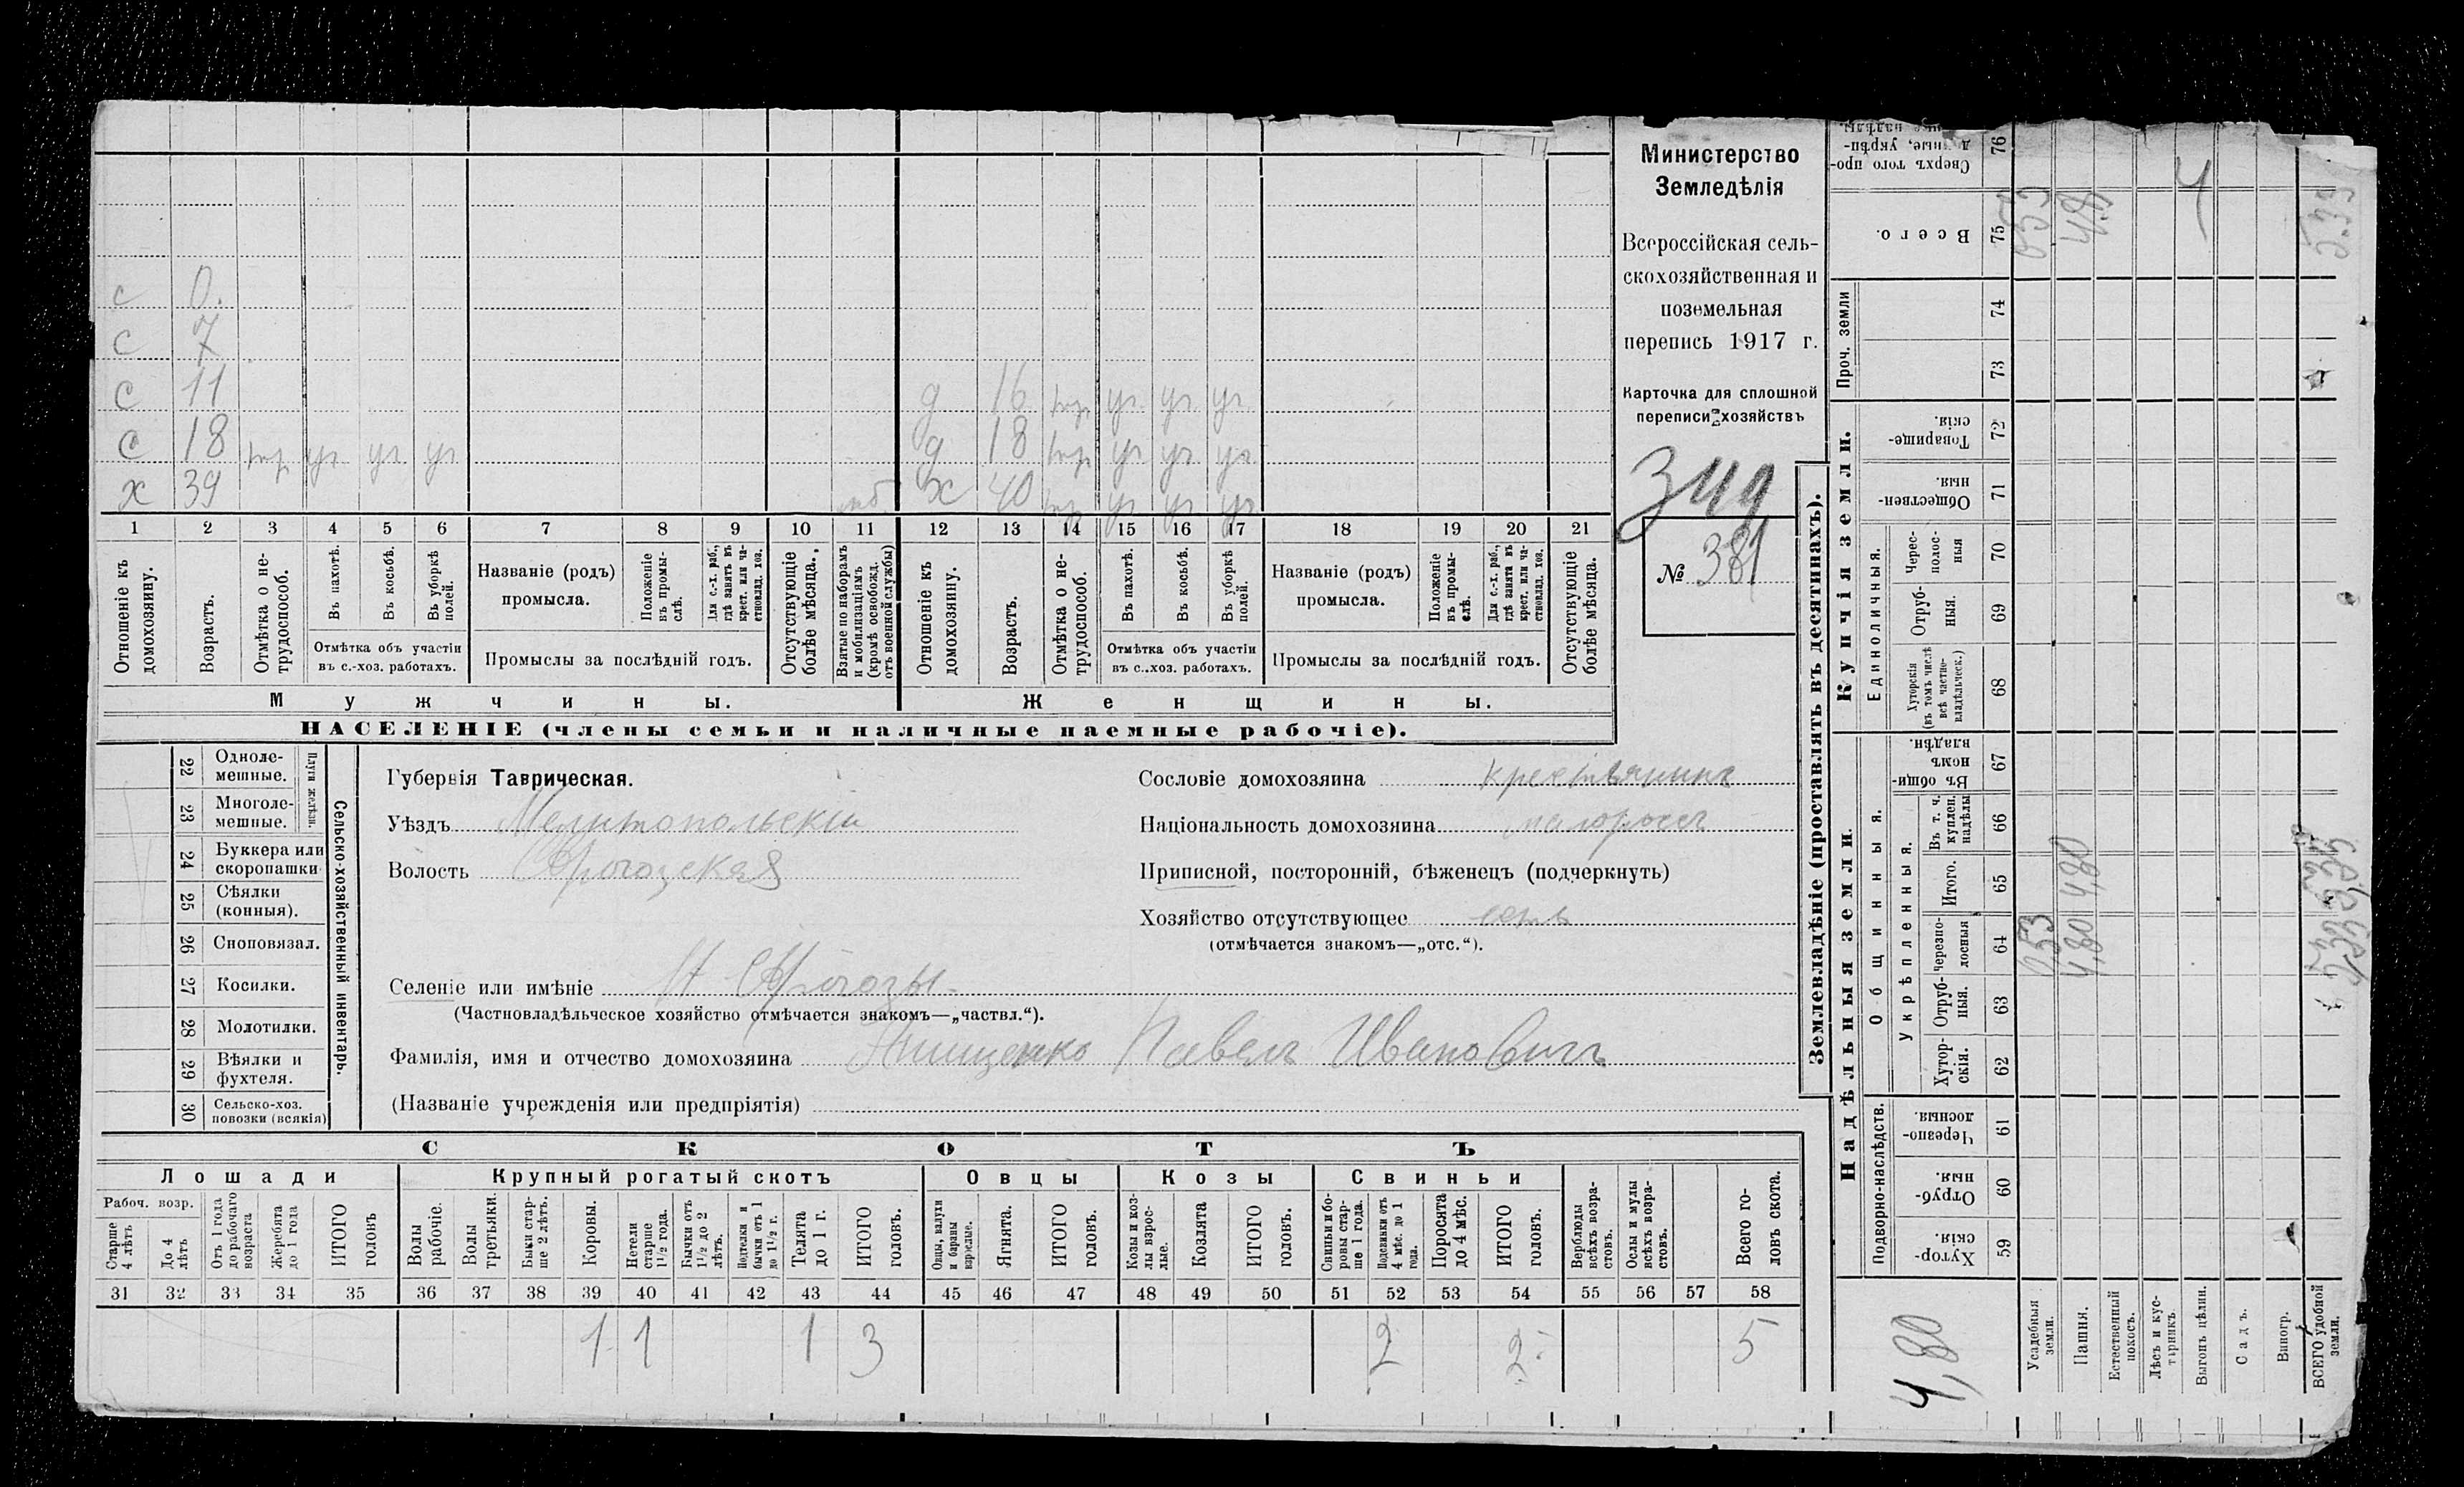 Министерство
Земледѣлія
Всероссійская сель-
скохозяйственная и
поземельная
перепись 1917 г.
Карточка для сплошной
переписи хозяйствъ
№ 381
с 0.
с 7
с 11 д 16
с 18 д 18
х 39 х 40
1 2 3 4 5 6 7 8 9 10 11 12 13 14 15 16 17 18 19 20 21
Отношеніе къ домохозяину.
Возрастъ.
Отмѣтка о не-трудоспособ.
Въ пахотѣ.
Въ косьбѣ.
Въ уборкѣ полей.
Отмѣтка объ участіи
въ с.-хоз. работахъ.
Названіе (родъ)
промысла.
Положеніе въ промы-слѣ.
Для с.-х. раб., гдѣ занятъ въ крест. или ча-стновлад. хоз.
Промыслы за послѣдній годъ.
Отсутствующіе болѣе мѣсяца.
Взятые по наборамъ и мобилизаціямъ (кромѣ освобожд. отъ военной службы)
Отношеніе къ домохозяину.
Возрастъ.
Отмѣтка о не-трудоспособ.
Въ пахотѣ.
Въ косьбѣ.
Въ уборкѣ полей.
Отмѣтка объ участіи
въ с.-хоз. работахъ.
Названіе (родъ)
промысла.
Положеніе въ промы-слѣ.
Для с.-х. раб., гдѣ занята въ крест. или ча-стновлад. хоз.
Промыслы за послѣдній годъ.
Отсутствующіе болѣе мѣсяца.
Мужчины. Женщины.
НАСЕЛЕНІЕ (члены семьи и наличные наемные рабочіе).
Сельско-хозяйственный инвентарь.
Плуги желѣзн.
22 Одноле-мешные.
23 Многоле-мешные.
24 Буккера или скоропашки
25 Сѣялки (конныя).
26 Сноповязал.
27 Косилки.
28 Молотилки.
29 Вѣялки и фухтеля.
30 Сельско-хоз. повозки (всякія)
Губернія Таврическая.
Уѣздъ Мелитопольскій
Волость
Селеніе или имѣніе
(Частновладѣльческое хозяйство отмѣчается знакомъ—„частвл.“).
Фамилія, имя и отчество домохозяина Онищенко Павелъ Ивановичъ
(Названіе учрежденія или предпріятія)
Сословіе домохозяина крестьянинъ
Національность домохозяина малороссъ
Приписной, посторонній, бѣженецъ (подчеркнуть)
Хозяйство отсутствующее
(отмѣчается знакомъ—„отс.“).
СКОТЪ
Лошади Крупный рогатый скотъ Овцы Козы Свиньи
Рабоч. возр.
Старше 4 лѣтъ
До 4 лѣтъ
Отъ 1 года до рабочаго возраста
Жеребята до 1 года
ИТОГО головъ
Волы рабочіе.
Волы третьяки.
Быки стар-ше 2 лѣтъ.
Коровы.
Нетели старше 1½ года.
Бычки отъ 1½ до 2 лѣтъ.
Подтелки и бычки отъ 1 до 1½ г.
Телята до 1 г.
ИТОГО головъ.
Овцы, валухи и бараны взрослые.
Ягнята.
ИТОГО головъ.
Козы и коз-лы взрос-лые.
Козлята
ИТОГО головъ.
Свиньи и бо-ровы стар-ше 1 года.
Подсвинки отъ 4 мѣс. до 1 года.
Поросята до 4 мѣс.
ИТОГО головъ.
Верблюды всѣхъ возра-стовъ.
Ослы и мулы всѣхъ возра-стовъ.
Всего го-ловъ скота.
31 32 33 34 35 36 37 38 39 40 41 42 43 44 45 46 47 48 49 50 51 52 53 54 55 56 57 58
1 1 1 3 2 2 5
Землевладѣніе (проставлять въ десятинахъ).
Надѣльныя земли.
Купчія земли.
Проч. земли
Подворно-наслѣдств.
Общинныя.
Укрѣпленныя.
Единоличныя.
Хутор-скія. 59
Отруб-ныя. 60
Черезпо-лосныя 61
Хутор-скія. 62
Отруб-ныя. 63
Черезпо-лосныя 64
Итого. 65
Въ т. ч. куплен. надѣлы 66
Въ общин-номъ владѣн. 67
Хуторскія (въ томъ числѣ всѣ частно-владѣльческ.) 68
Отруб-ныя. 69
Черес-полос-ныя 70
Обществен-ныя. 71
Товарище-скія. 72
73
74
Всего. 75
Сверхъ того про- 76
Усадебныя земли. 0,53
Пашня. 4,80 4,80 4.8
Естественный покосъ.
Лѣсъ и кус-тарникъ.
Выгонъ цѣлин.
Садъ.
Виногр.
ВСЕГО удобной земли.
4,80